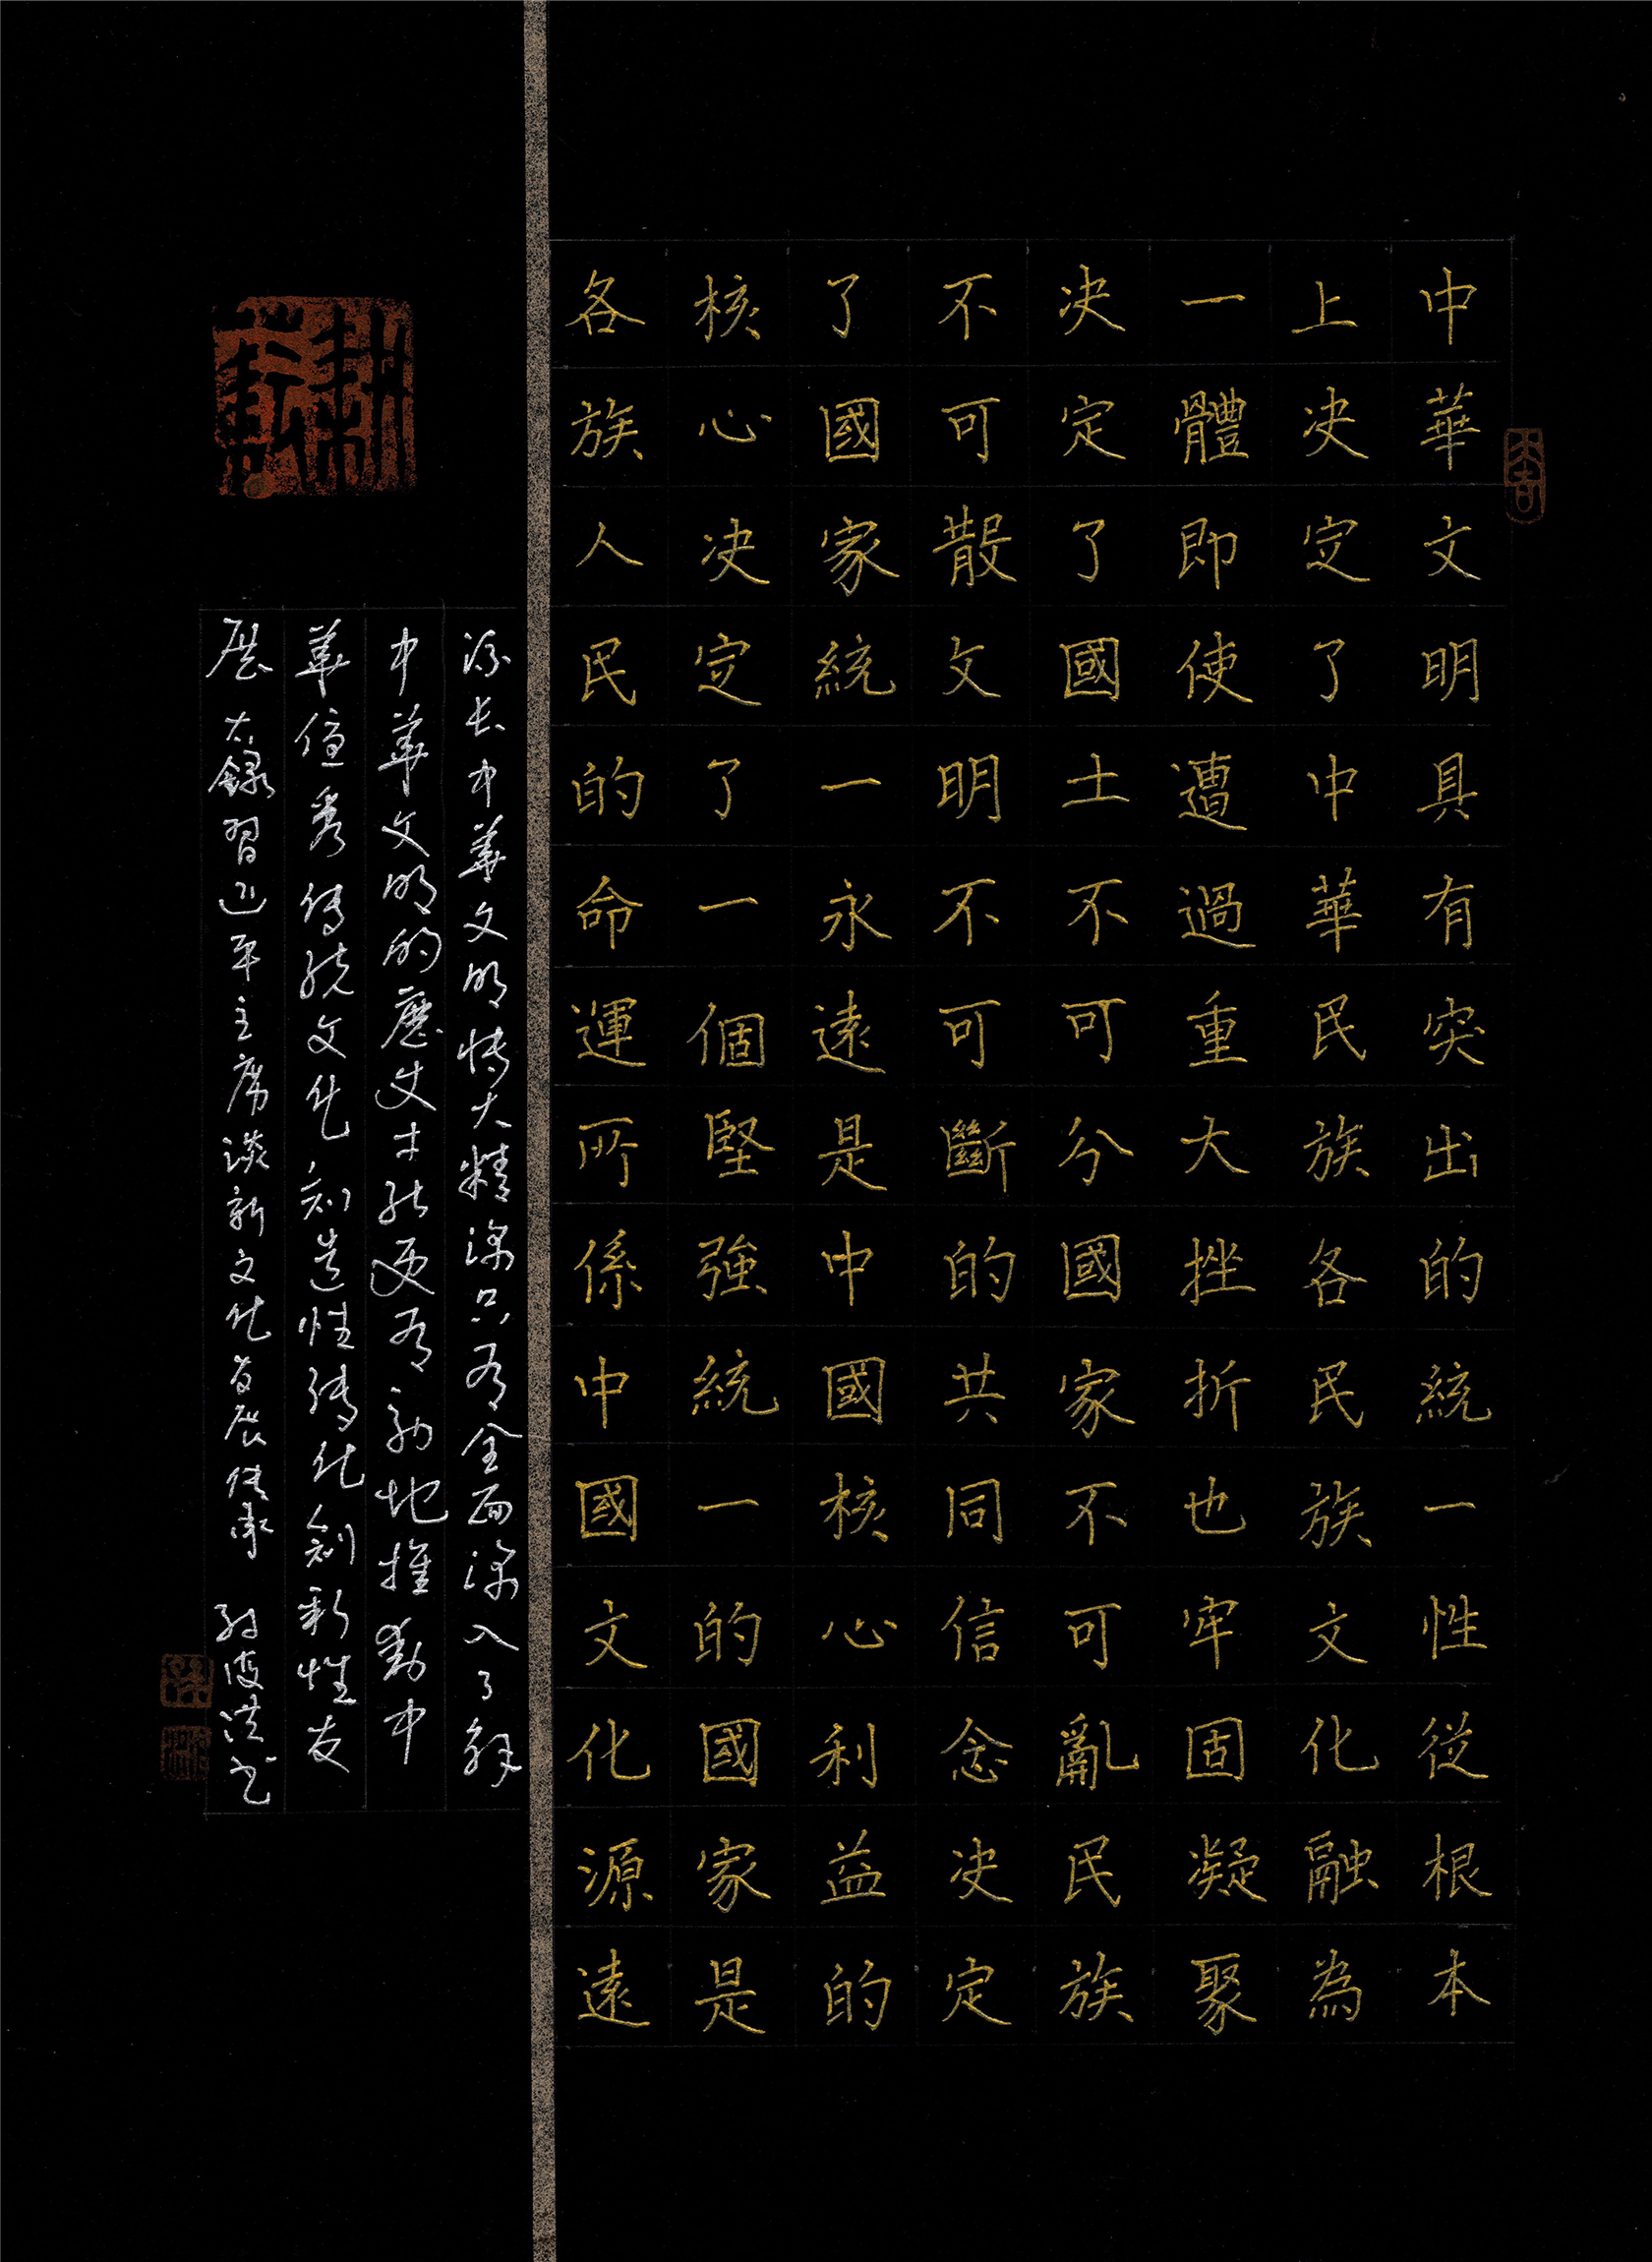 中華文明具有突出的統一性從根本
上决定了中華民族各民族文化融為
一體即使遭過重大挫折也牢固凝聚
决定了國土不可分國家不可亂民族
不可散文明不可斷的共同信念决定
了國家統一永遠是中國核心利益的
核心决定了一個堅強統一的國家是
各族人民的命運所係中國文化源遠
流长中華文明博大精深只有全面深入了解
中華文明的歷史才能更有効地推動中
華優秀傳統文化創造性轉化創新性发
展 錄習近平主席談新文化发展傳承
大吉